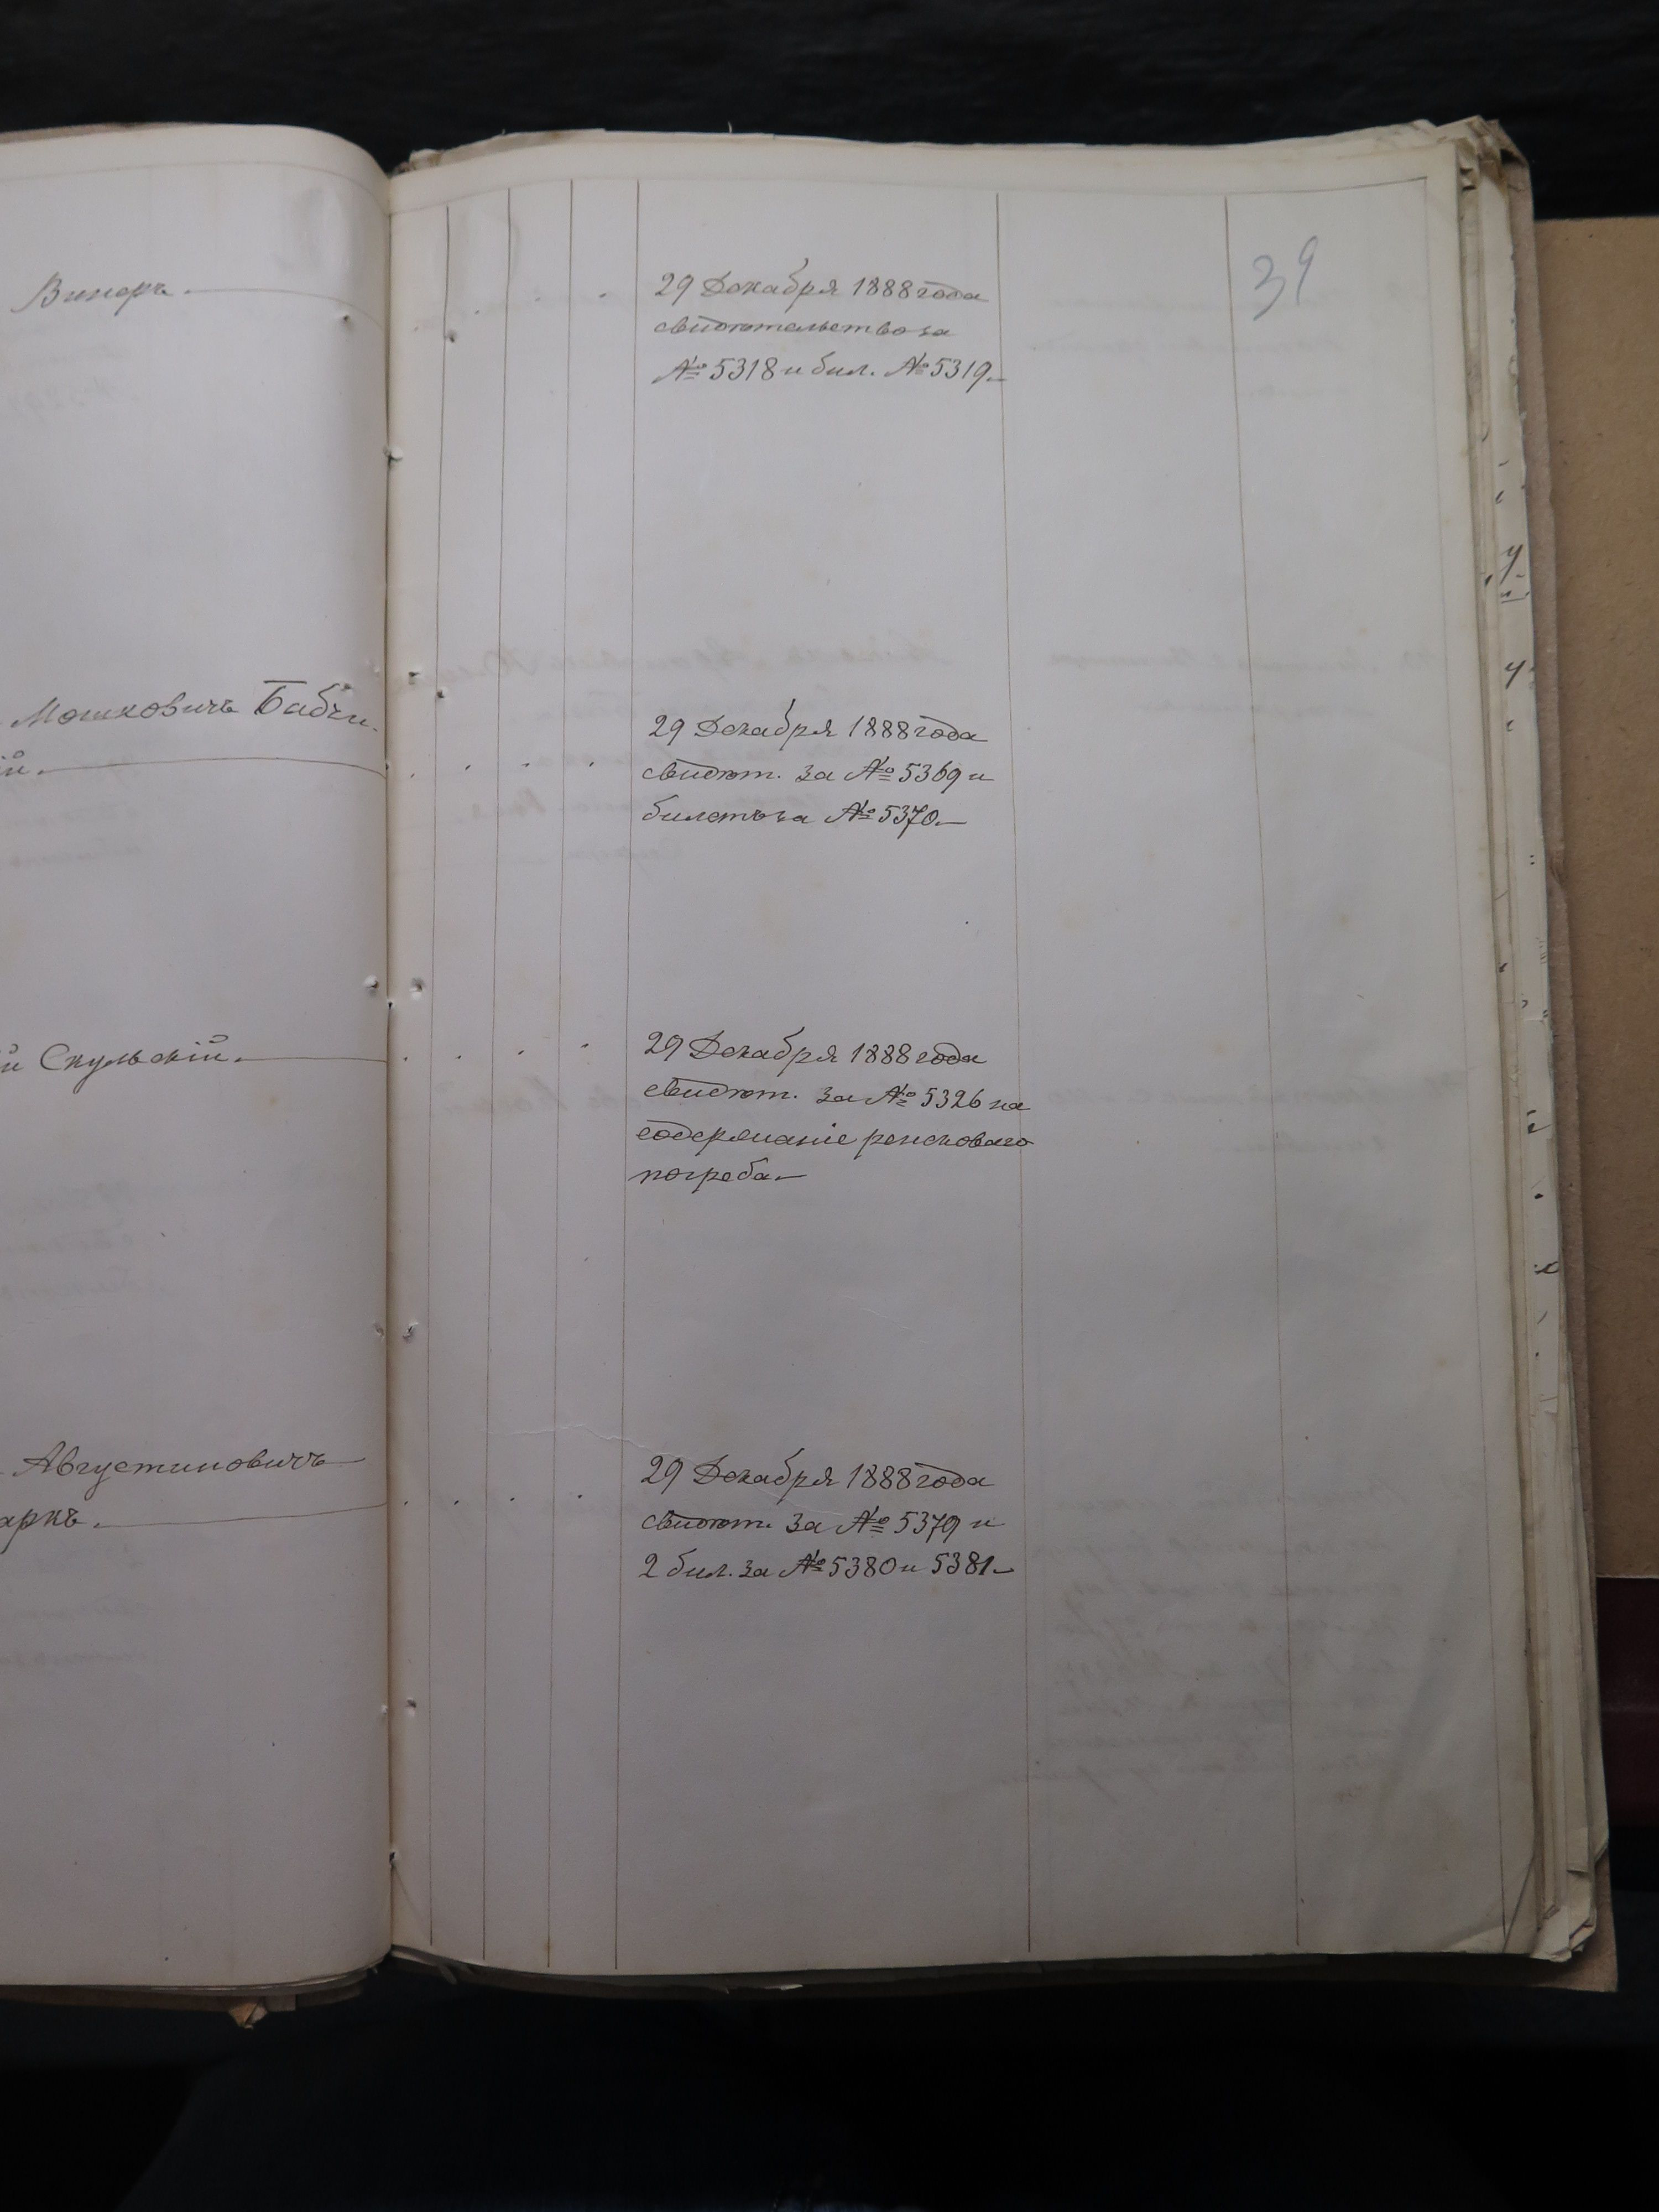 39
Винеръ.
29 Декабря 1888 года
свидѣтельство за
№ 5318 и бил. № 5319.
Мошковичъ Бабчи-
ій.
29 Декабря 1888 года
свидѣт. за № 5369 и
билетъ за № 5370.
й Скульскій.
29 Декабря 1888 года
свидѣт. за № 5326 на
содержаніе ренсковаго
погреба.
Августиновичъ
аркъ.
29 Декабря 1888 года
свидѣт. за № 5379 и
2 бил. за № 5380 и 5381.